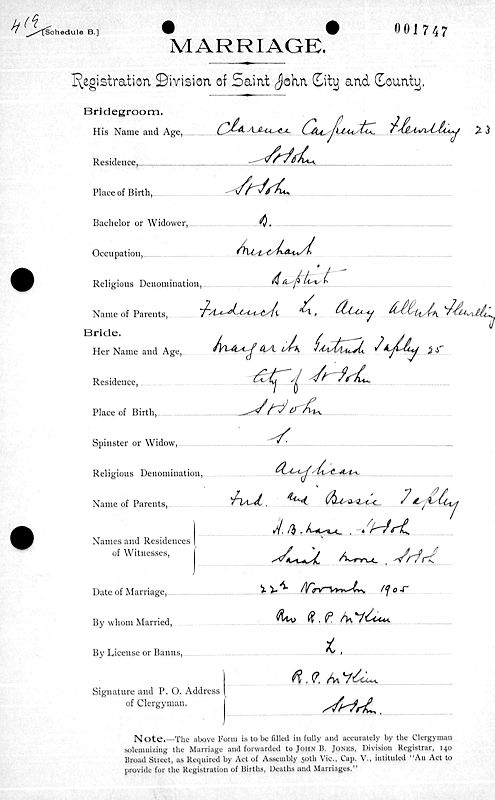 419
[Schedule B.]
001747
MARRIAGE.
Registration Division of Saint John City and County.
Bridegroom.
His Name and Age, Clarence Carpenter Flewelling 23
Residence, St John
Place of Birth, St John
Bachelor or Widower, B.
Occupation, Merchant
Religious Denomination, Baptist
Name of Parents, Frederick Amy Alberta Flewelling
Bride.
Her Name and Age, Gertrude Tapley 25
Residence, City of St John
Place of Birth, St John
Spinster or Widow, S.
Religious Denomination, Anglican
Name of Parents, Fred. and Bessie Tapley
Names and Residences of Witnesses,
H. B. St Joh
Sarah Moore, St Joh
Date of Marriage, 22nd November 1905
By whom Married, Rev R. P. McKim
By License or Banns, L.
Signature and P. O. Address of Clergyman.
R. P. McKim
St John.
Note.—The above Form is to be filled in fully and accurately by the Clergyman
solemnizing the Marriage and forwarded to JOHN B. JONES, Division Registrar, 140
Broad Street, as Required by Act of Assembly 50th Vic., Cap. V., intituled "An Act to
provide for the Registration of Births, Deaths and Marriages."